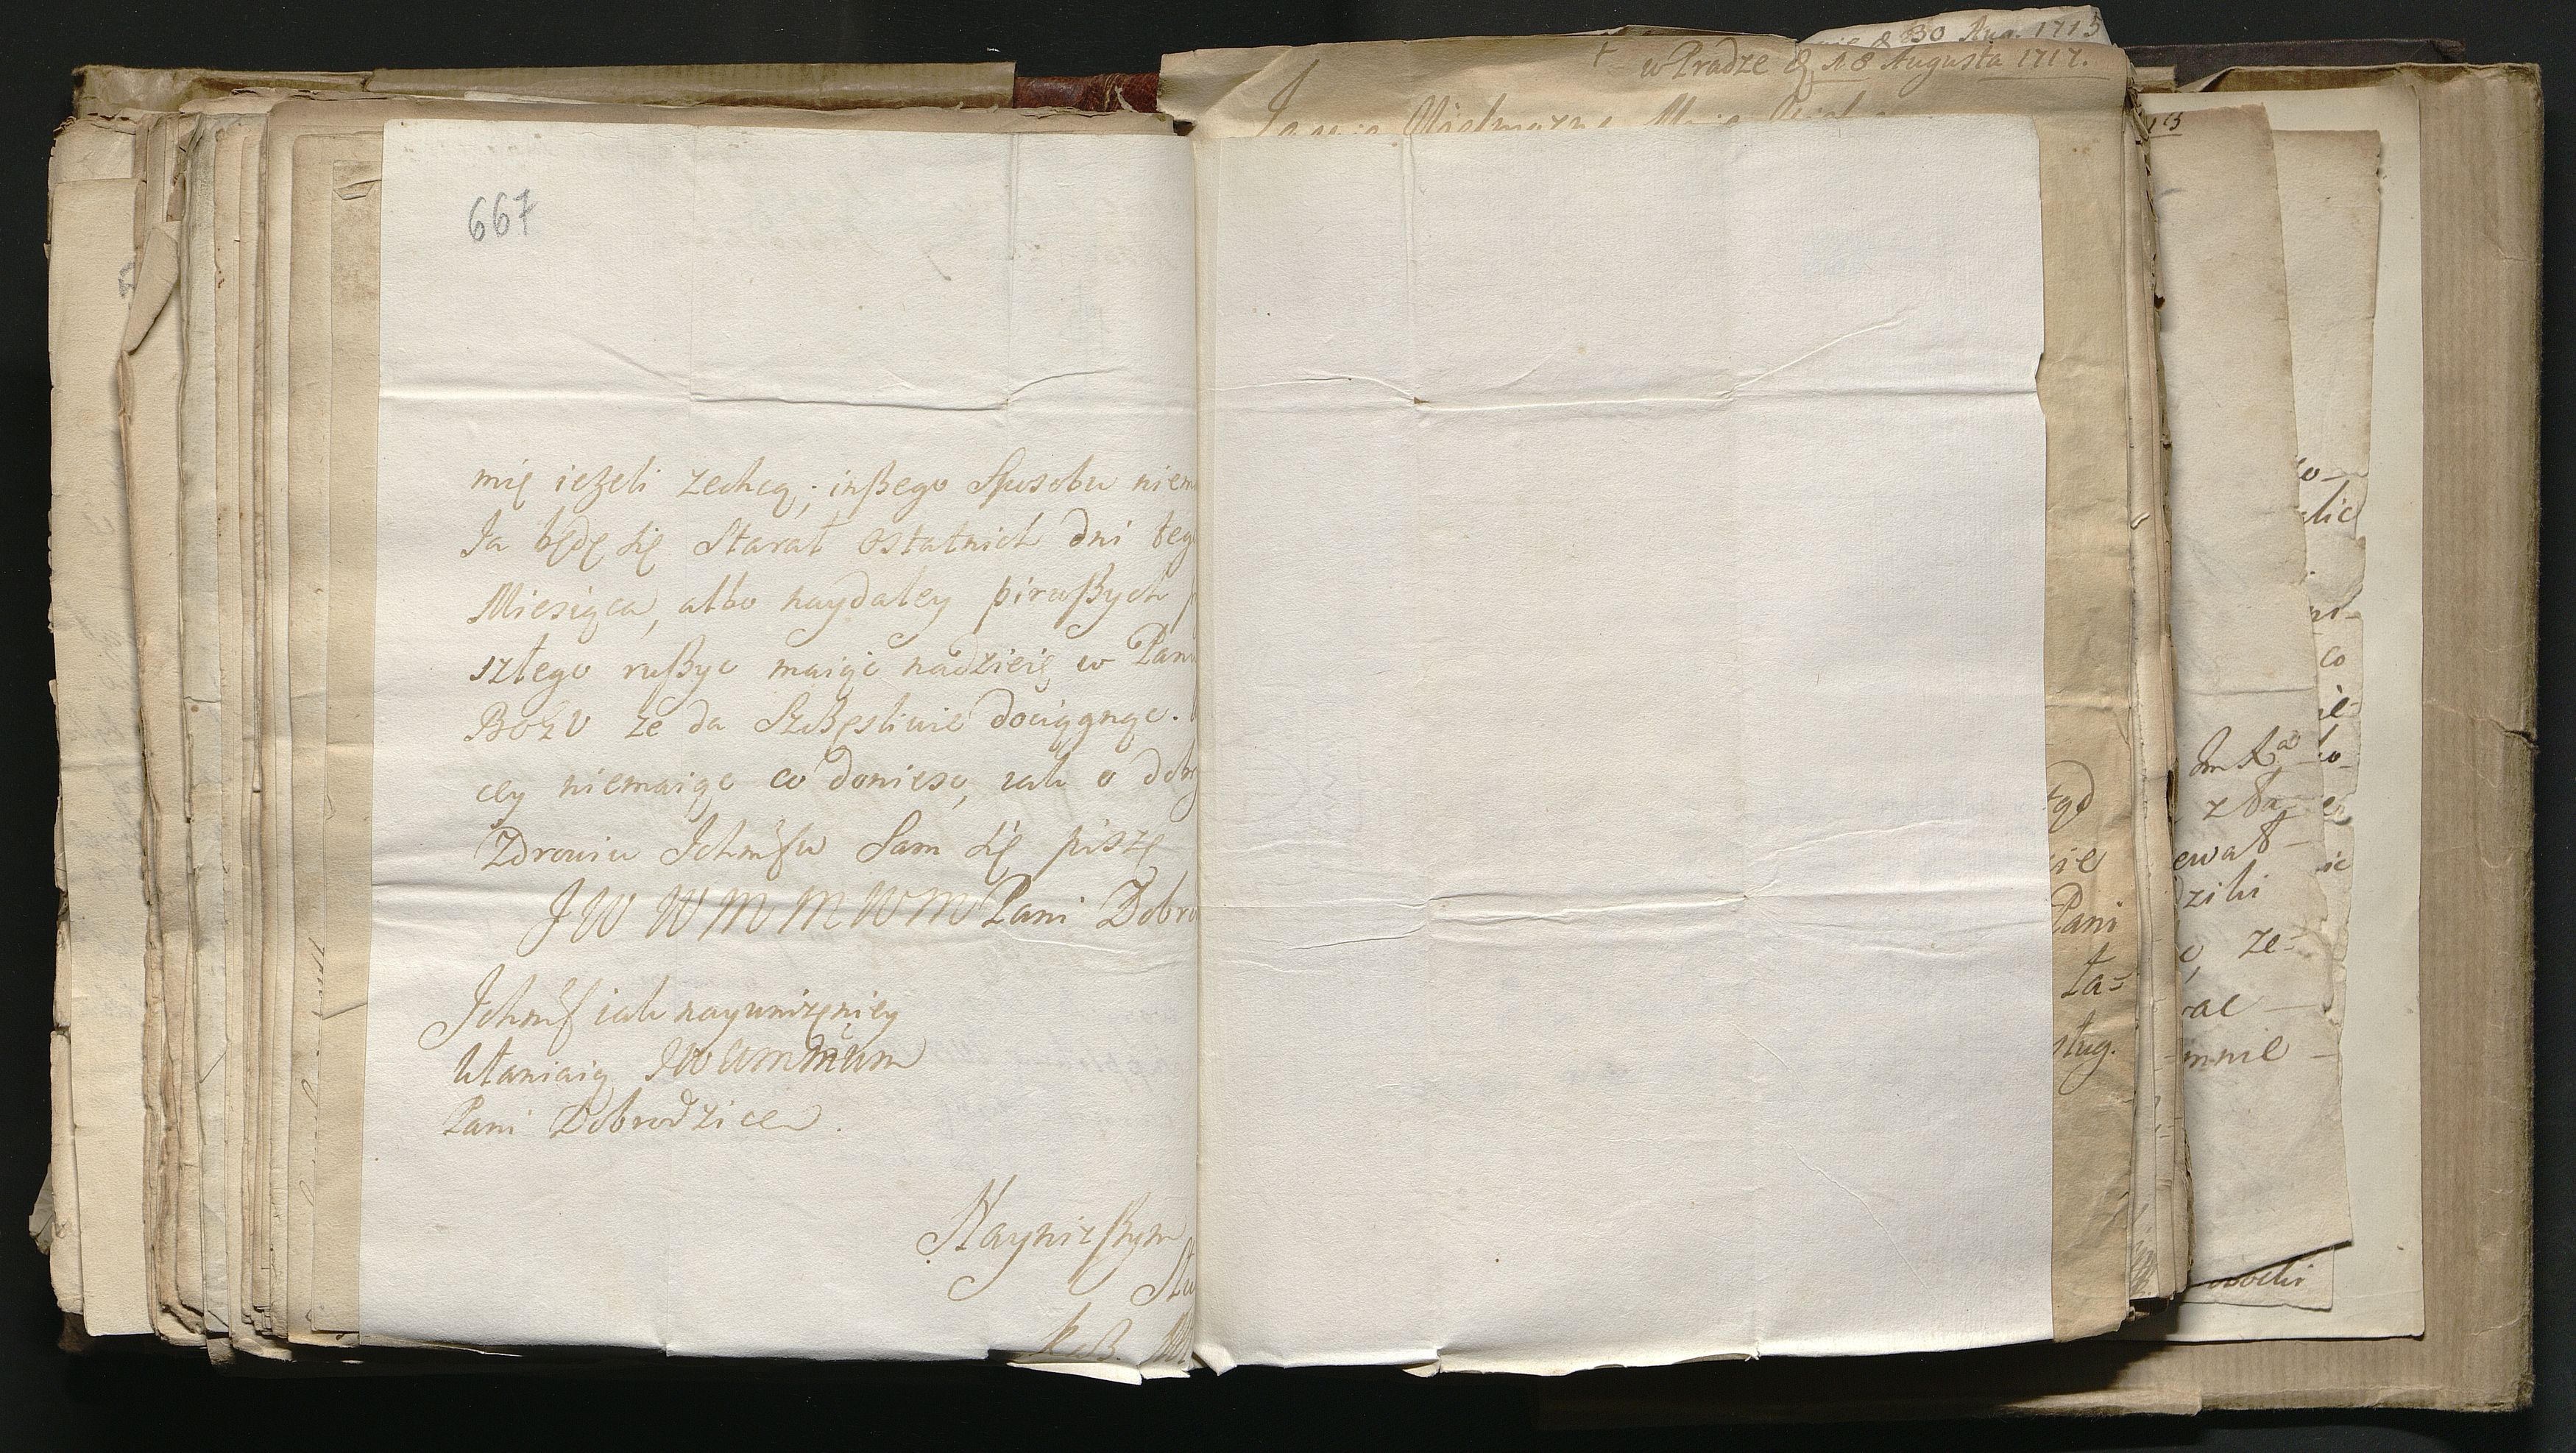 30 Aug. 1715
w Pradze d. 18 Augusta 1717.
667
mię ieżeli zechcą; inßego Sposobu niem
Ja będę się Starał ostatnich dni teg
Miesiąca, albo naydaley pirwßych
szłego rußyc maiąc nadzieię w Pan
Bogu ze da Szczęsliwie dociągnąc.
cey niemaiąc co doniesc, iak o dobr
Zdrowiu Ichmſw Sam się piszę
JW W M M W M Pani Dobro
Ichmſ iak nayuniżeniey
kłaniaią JWWMMWM
Pani Dobrodzice.
Nayniżßym
Słu
k. B.
Pani
ła=
sług.
co
ewał
dzili
ze=
mnie